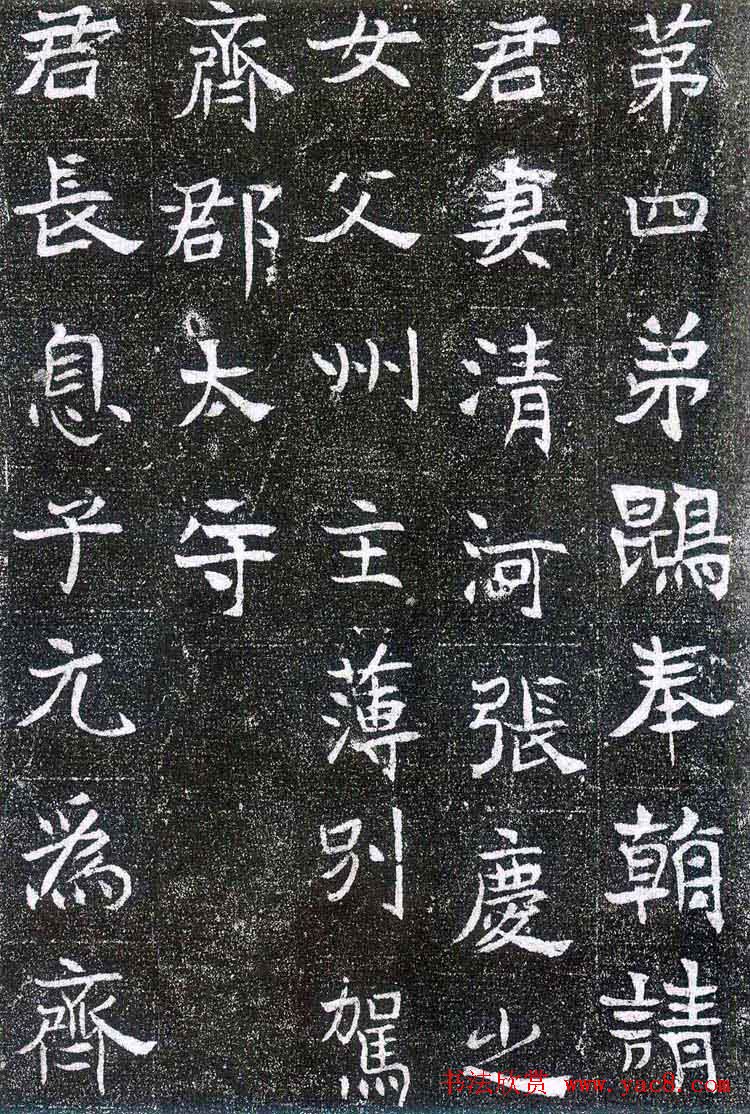 苐四弟鶤奉朝請
君妻清河張慶之
女父州主薄別駕
齊郡太守
君長息子元爲齊
书法欣赏 www.yac8.com